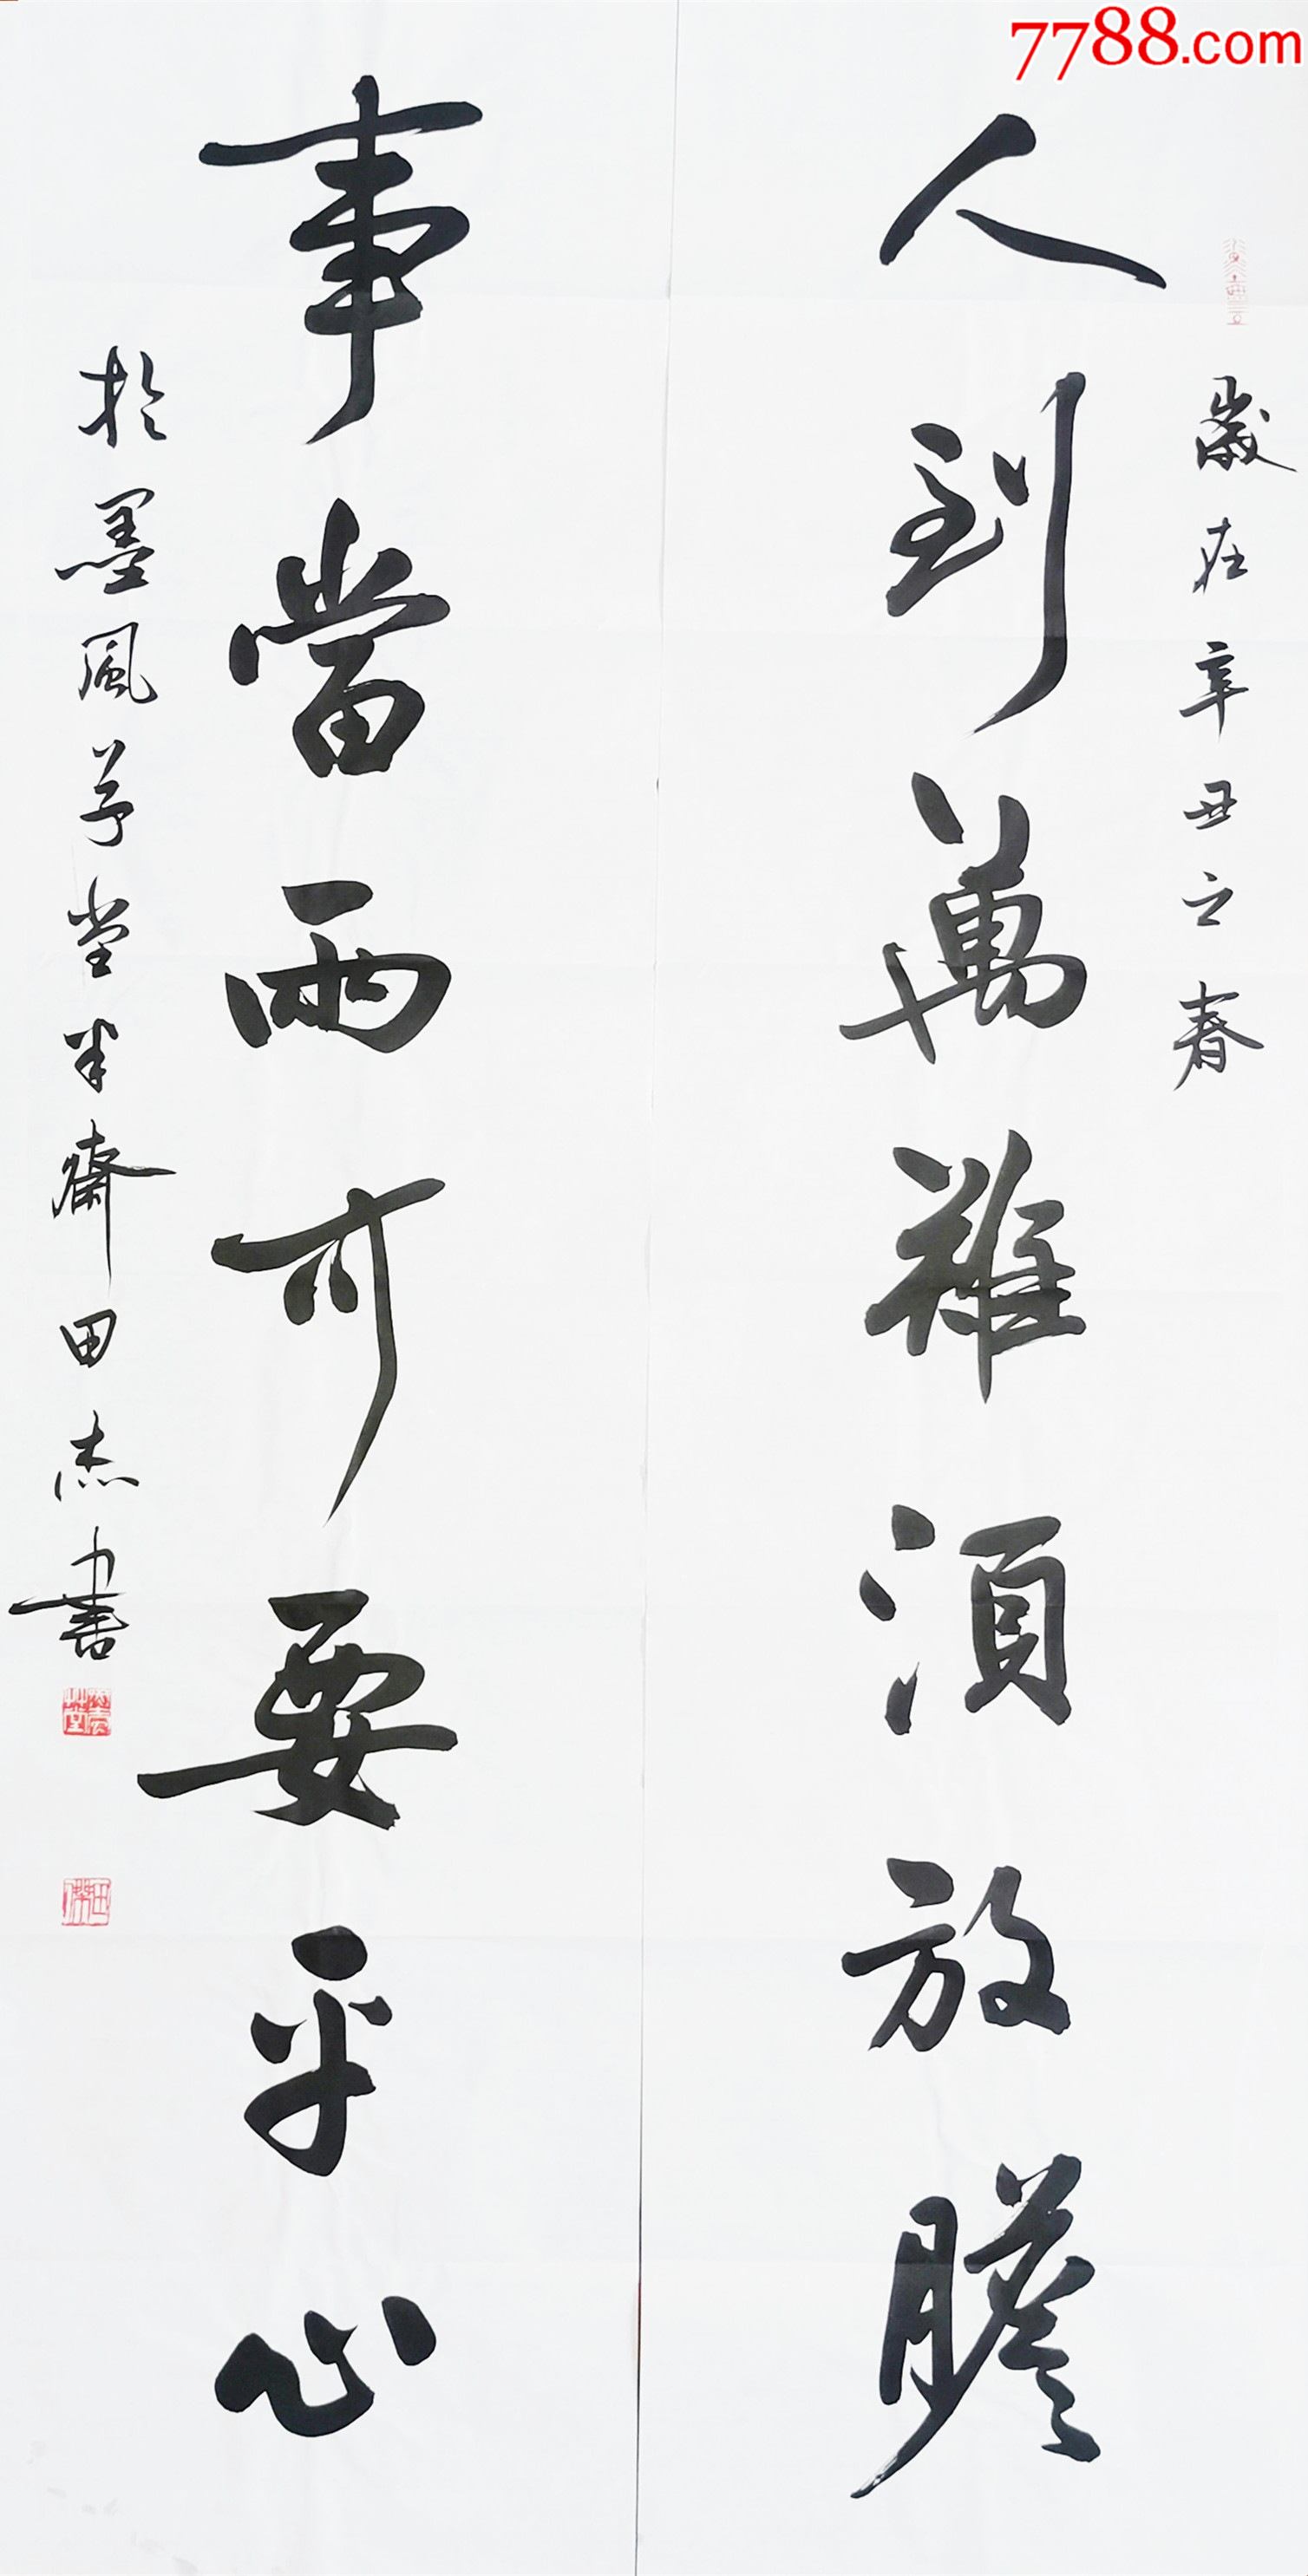 7788.com
歲在辛丑之春
人到萬難須放膽
事當兩可要平心
於墨風草堂半齋田杰書